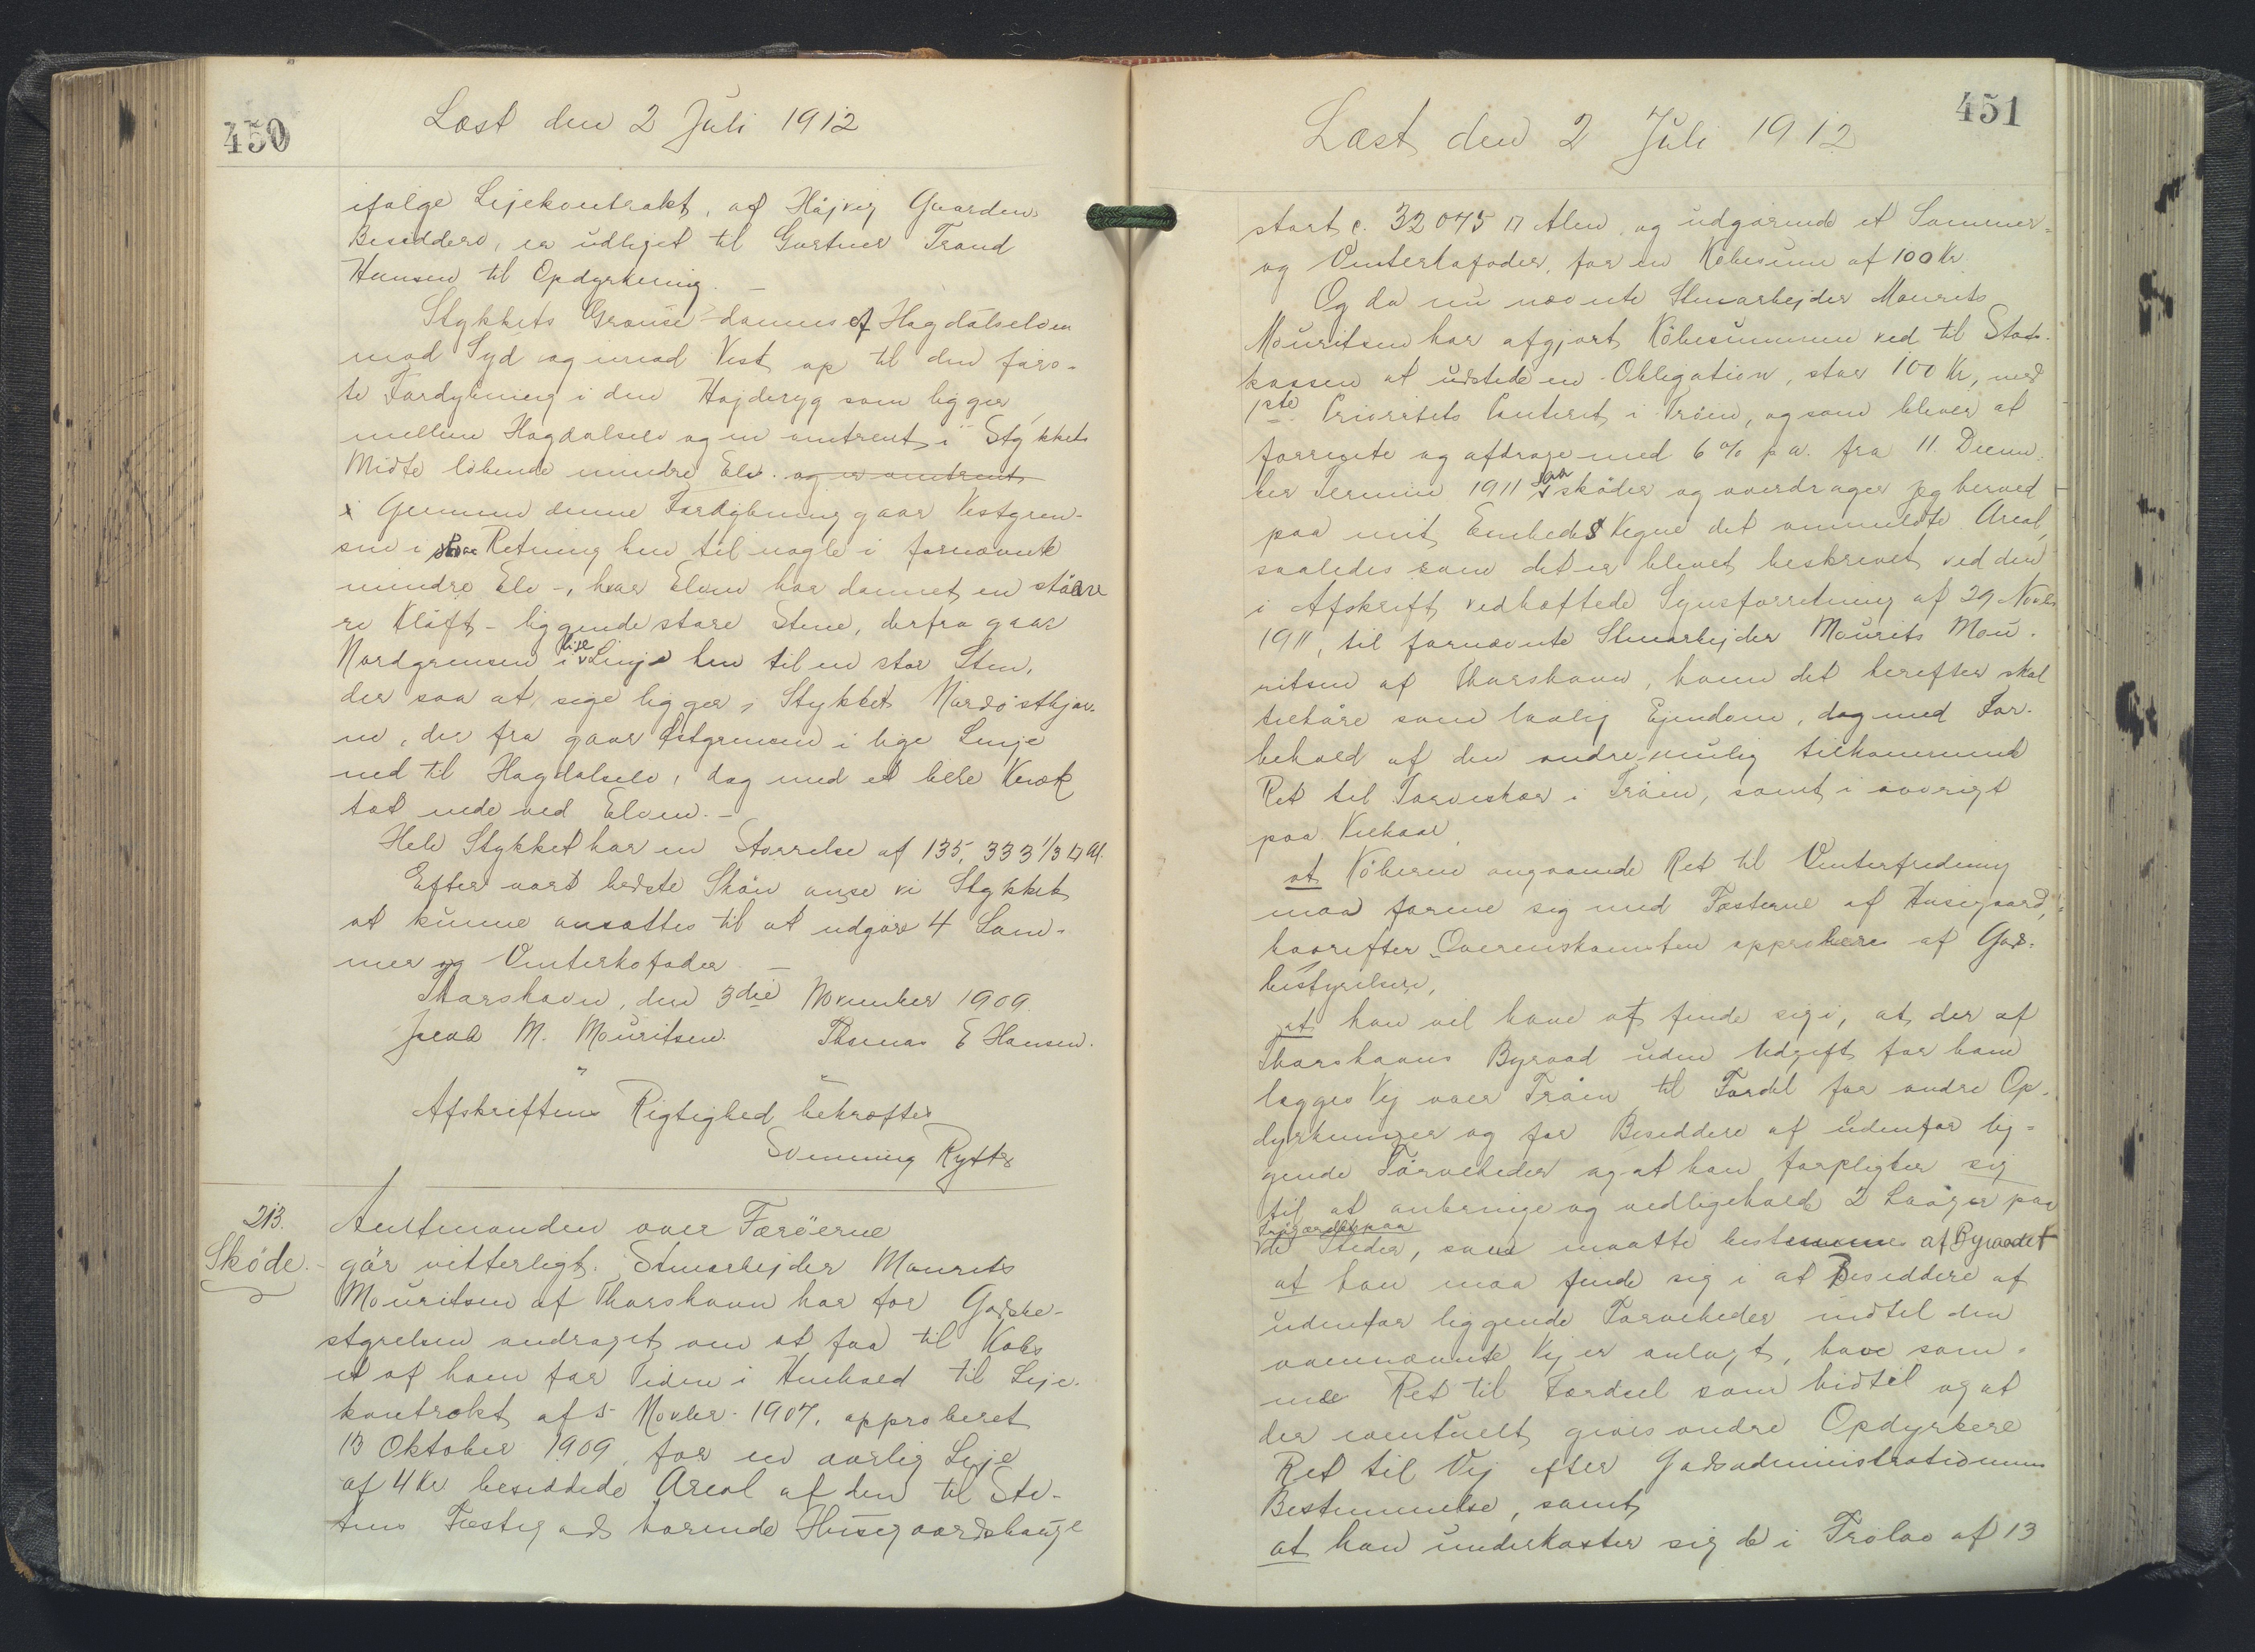 450
Læst den 2 Juli 1912
ifølge Lejekontrakt, af Højvig Gaarden
Besiddere, er udlejet til Gartner Trond
Hansen til Opdyrkning. —
Stykkets Grænse dannes af Hagdalselven
mod Syd og imod Vest op til den førs-
te Fordybning i den Højderyg som ligger
mellem Hagdalselv og en omtrent i Stykkets
Midte löbende mindre Elv. og er omtrent
i Gennem denne Fordybning gaar Vestgren-
sen i skraa Retning hen til nogle i fornævnte
mindre Elv -, hvor Elven har dannet en större
re Klöft - liggende store Stene, derfra gaar
Nordgrensen i lige Linje hen til en stor Sten,
der saa at sige ligger i Stykkets Nordösthjör-
ne, der fra gaar Östgrensen i lige Linje
ned til Hagdalselv, dog med et lille Knæk
tæt nede ved Elven. -
Hele Stykket har en Størrelse af 135,333 1/3 □ Al.
Efter vort bedste Skön anse vi Stykket
at kunne ansættes til at udgöre 4 Som-
mer og Vinterkofoder —
Thorshavn, den 3die November 1909.
Jacob M. Mouritsen. Thomas E Hansen.
Afskriftens Rigtighed bekræfter
Svenning Rytter
213. Amtmanden over Færöerne
Sköde. - gör vitterligt: Stenarbejder Mourits
Mouritsen af Thorshavn har for Godsbe-
styrelsen andraget om at faa til Köbs
et af ham for Tiden i Henhold til Leje-
kontrakt af 5 Novber. 1907, approberet
13 Oktober 1909, for en aarlig Leje
af 4 Kr besiddede Areal af den til Sta-
tens Fæstegods hörende Husegaardshauge
451
Læst den 2 Juli 1912
stort c. 32045 □ Alen, og udgörende et Sommer-
og Vinterkofoder, for en Köbesum af 100 Kr.
Og da nu nævnte Stenarbejder Mourits
Mouritsen har afgjort Köbesummen ved til Stats-
kassen at udstede en Obligation, stor 100 Kr, med
1ste Prioritets Panteret i Tröen, og som bliver at
forrente og afdrage med 6 % p a. fra 11. Decem-
ber Termin 1911 saa sköder og overdrager jeg herved
paa mit Embeds Vegne det ommeldte Areal,
saaledes som det er blevet beskrevet ved den
i Afskrift vedhæftede Synsforretning af 29 Novbr
1911, til fornævnte Stenarbejder Mourits Mou-
ritsen af Thorshavn, hvem det herefter skal
tilhöre som lovlig Ejendom, dog med For-
behold af den andre mulig tilkommende
Ret til Törveskær i Tröen, samt i övrigt
paa Vilkaar,
at Köberen angaaende Ret til Vinterfredning
maa forene sig med Fæsterne af Husegaard,
hvorefter Overenskomsten approberes af Gods-
bestyrelsen,
at han vil have at finde sig i, at der af
Thorshavns Byraad uden Udgift for ham
lægges Vej over Tröen til Fordel for andre Op-
dyrkninger og for Besiddere af udenfor lig-
gende Törveheder og at han forpligter sig
til at anbringe og vedligeholde 2 Laager paa
Tröjgærdet paa
de Steder, som maatte bestemmes af Byraadet
at han maa finde sig i at Besiddere af
udenfor liggende Törveheder indtil den
ovennævnte Vej er anlagt, have sam-
me Ret til Færdsel som hidtil og at
der eventuelt gives andre Opdyrkere
Ret til Vej efter Godsadministrationens
Bestemmelse, samt
at han underkaster sig de i Trölov af 13